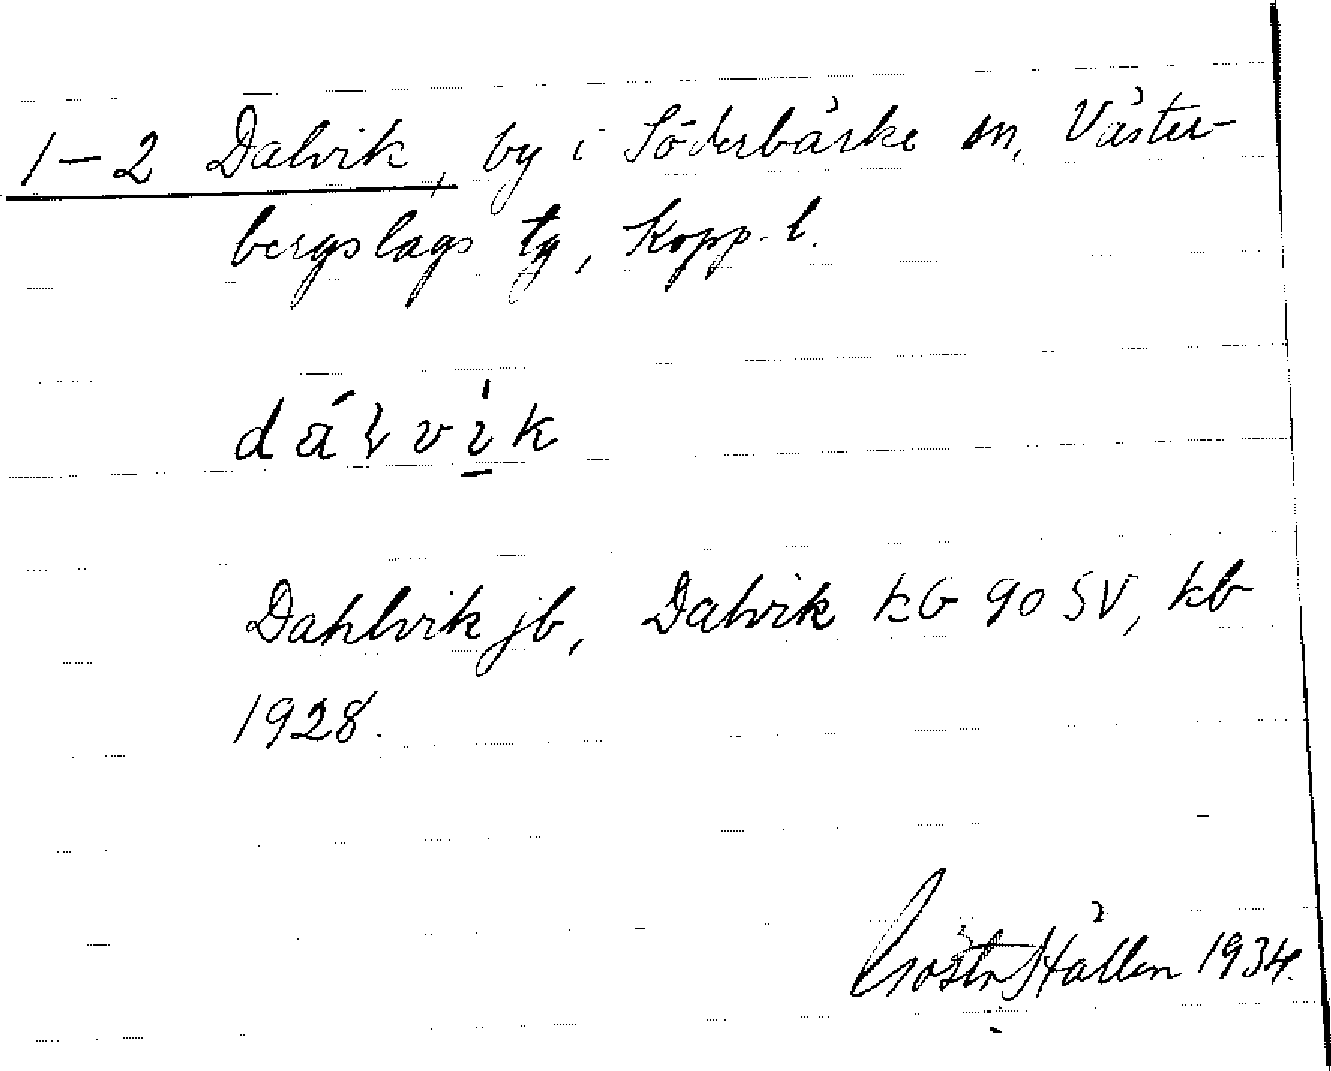 1–2 Dalvik, by i Söderbärke sn, Väster-
bergslags tg, Kopp. l.
dáɫvìk
Dahlvik jb, Dalvik kG 90 SV, kb
1928.
Gösta Hallén 1934.